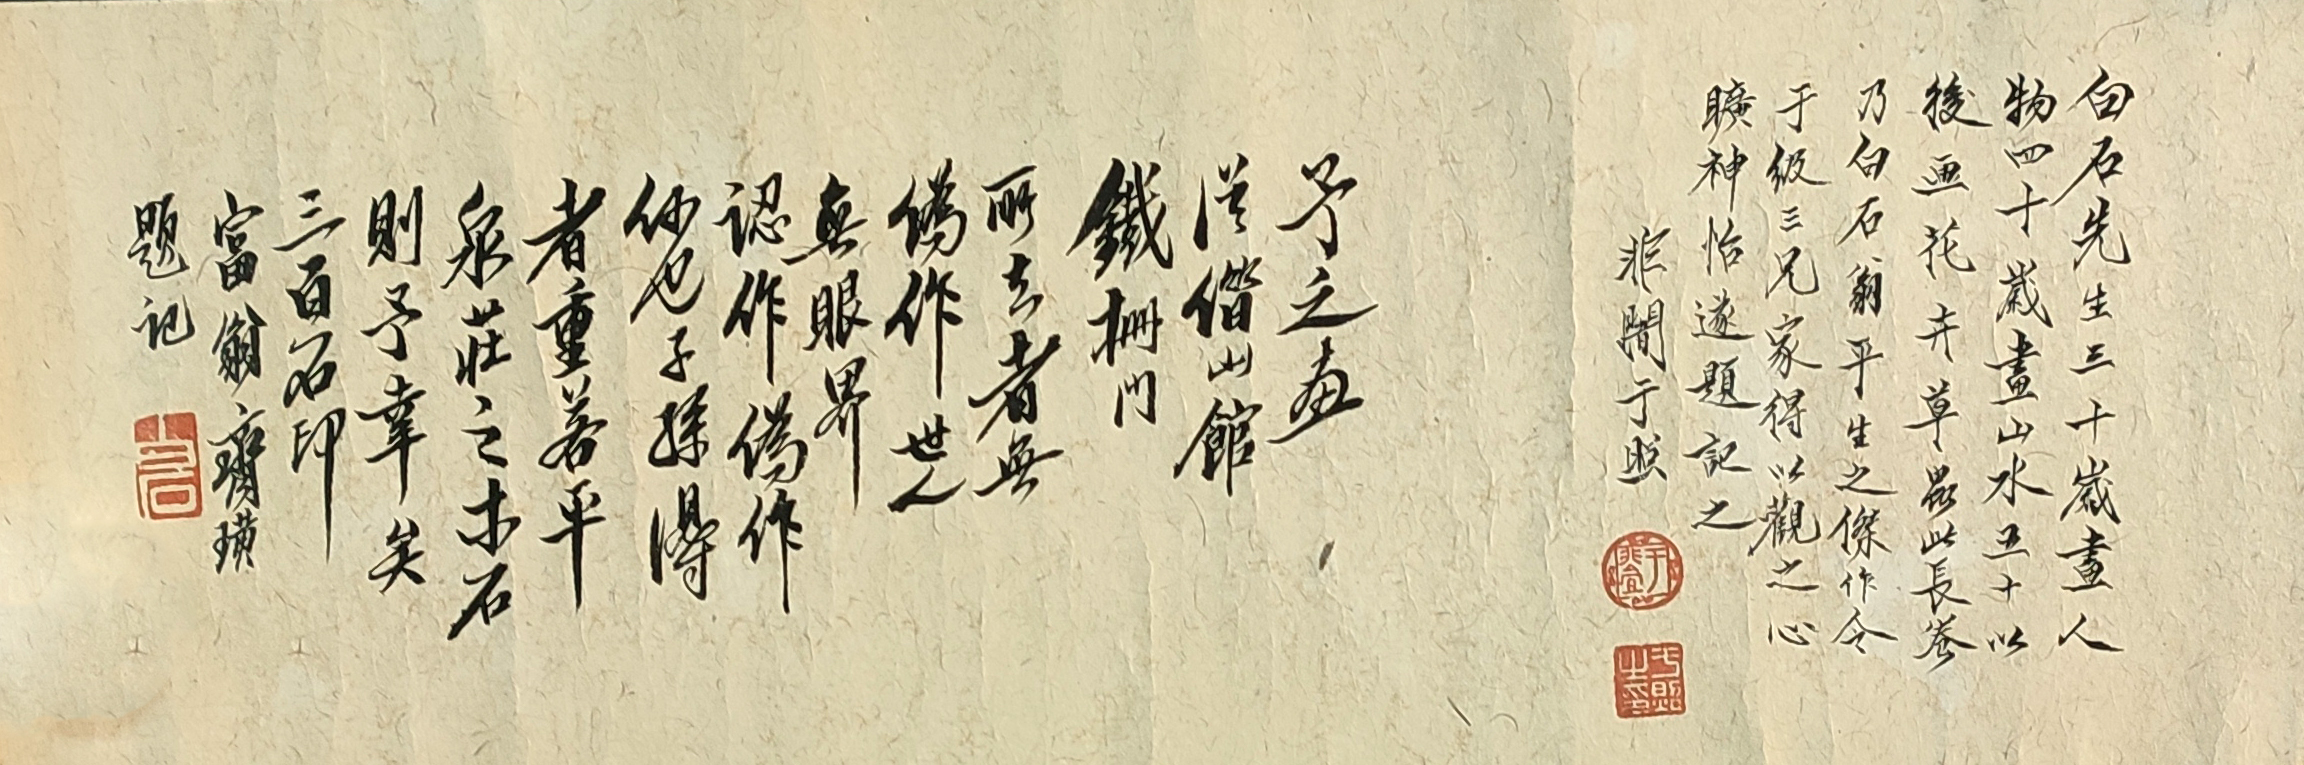 白石先生三十歲畫人
物四十歲畫山水五十以
後画花卉草虽此長卷
乃白石翁平生之傑作今
于級三兄家得以觀之心
曠神怡遂題記之
非闇于照
予之畫
從借山館
鐵柵門
所去者無
偽作世人
無眼界
認作偽作
何也子孫得
者重若平
泉莊之木石
則予幸矣
三百石印
富翁齊璜
題記